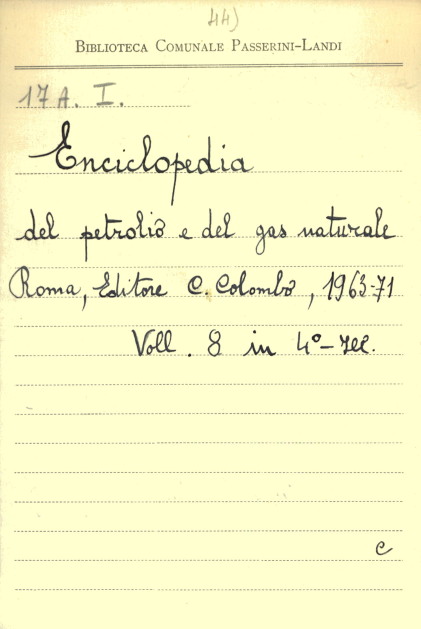 44)
BIBLIOTECA COMUNALE PASSERINI-LANDI
17 A. I.
Enciclopedia
del petrolio e del gas naturale
Roma, Editore C. Colombo, 1963-71
Voll. 8 in 4° - ill.
C